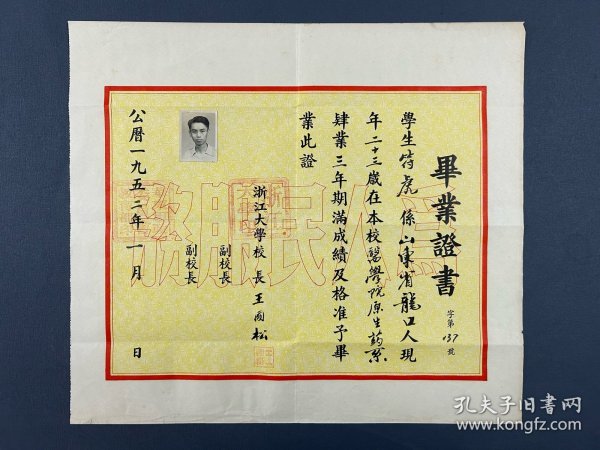 畢業證書
字第137號
學生符虎係山東省龍口人現
年二十三歲在本校醫學院原生药系
肄業三年期滿成績及格准予畢
業此證
浙江大學校長王囯松
副校長
副校長
公曆一九五二年一月 日
為人民服務
孔夫子旧书网
www.kongfz.com